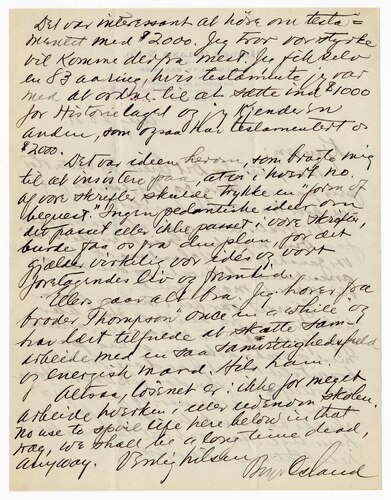 Det var interessant at höre om testa=
mentet med $2000. Jeg tror vor styrke
vil komme derfra mest. Jeg fik selv
en 83 aaring, hvis testamente jeg var
med at ordne til at sætte ind $1000
for Historielaget og jeg kjender en
anden, som ogsaa har testamentert os
$2000.
Det var ideen herom, som bragte mig
til at insistere paa, at vi i hvert no.
af vore skrifter skulde trykke en "form of
bequest". Ingen pedantiske ideer om
det passet eller ikke passet i vore skrifter,
burde faa os fra den plan, for det
gjælder virkelig vor ides og vort
foretagendes liv og fremtid.
Ellers gaar alt bra. Jeg hører fra
broder Thompson "once in a while" og
har lært tilfulde at skatte sam=
arbeide med en saa samvittighedsfuld
og energisk mand. Hils ham.
Altsaa, løsenet er: ikke for meget
arbeide hverken i eller udenom skolen.
No use to spoil life here below in that
way, we shall be a long time dead,
anyway. Venlig hilsen
Birger Osland